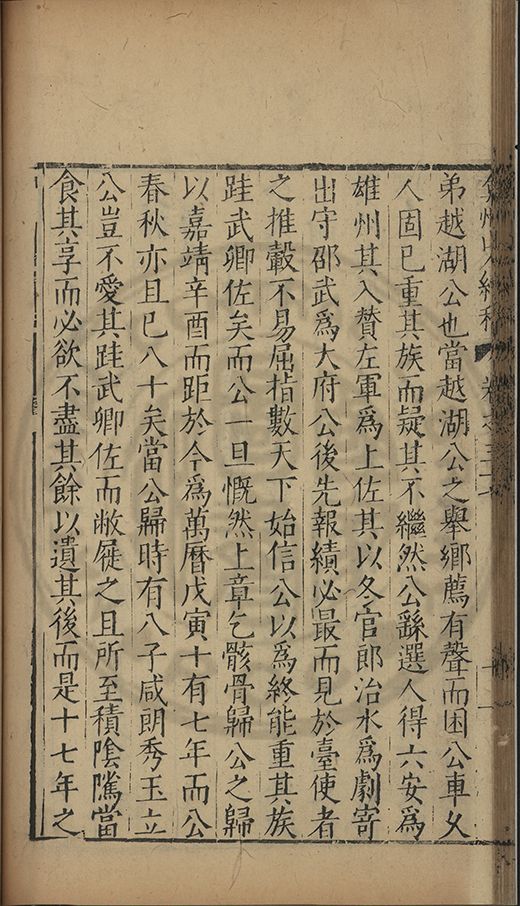 弟越湖公也當越湖公之舉鄉薦有聲而困公車父
人固已重其族而疑其不繼然公繇選人得六安爲
雄州其入贊左軍爲上佐其以冬官郎治水爲劇寄
出守邵武爲大府公後先報績必最而見於臺使者
之推轂不易屈指數天下始信公以爲終能重其族
跬武卿佐矣而公一旦慨然上章乞骸骨歸公之歸
以嘉靖辛酉而距於今爲萬曆戊寅十有七年而公
春秋亦且已八十矣當公歸時有八子咸朗秀玉立
公豈不愛其跬武卿佐而敝屣之且所至積陰隲當
食其享而必欲不盡其餘以遺其後而是十七年之